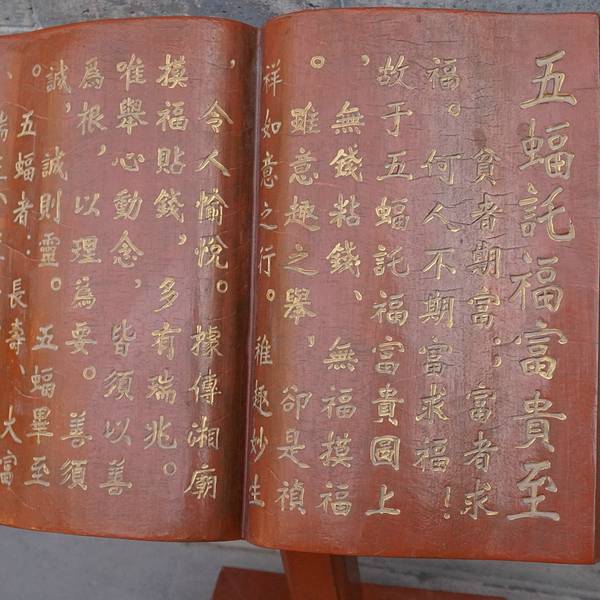 五蝠託福富貴至
貧者期富；富者求
福。何人不期富求福！
故于五蝠託福富貴圖上
，無錢粘錢、無福摸福
。雖意趣之舉，卻是禎
祥如意之行。雅趣妙生
，令人愉悅。據傳湘廟
摸福貼錢，多有瑞兆。
唯舉心動念，皆須以善
為根，以理為要。善須
誠，誠則靈。五蝠畢至
。五蝠者：長壽、大富